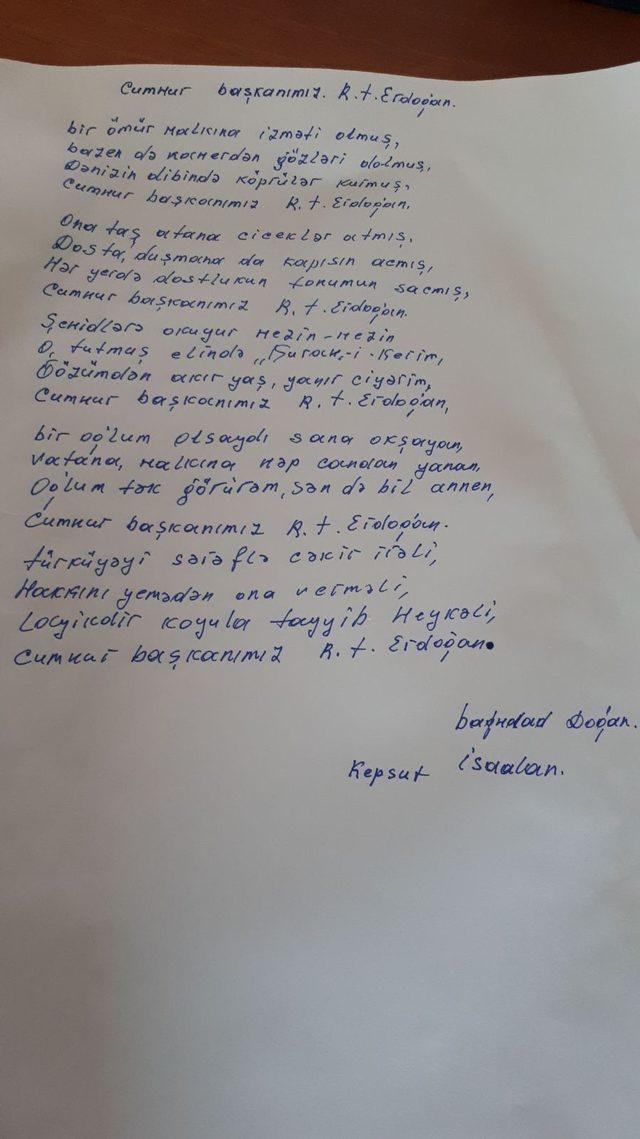 Cumhur başkanımız. R.t.Erdoğan.
bir ömür halkına izməti olmuş,
bazen də kaherdən gözləri dolmuş,
Dənizin dibində köprülər kurmuş,
Cumhur başkanımız R.t.Erdoğan.
Ona taş atana cicəklər atmış.
Dosta, duşmana da kapısın acmış,
Hər yerdə dostlukun tohumun sacmış,
Cumhur başkanımız R.t.Erdoğan.
Şehidlərə okuyur hezin-hezin
O, tutmaş elində „Kurah,-i-Kerim,
Gözümdən akır yaş, yanır ciyərim,
Cumhur başkanımız R.t.Erdoğan,
bir oğlum olsaydı sana okşayan,
vatana, halkına həp candan yanan,
Oğlum tək görürəm, sən də bil annen,
Cumhur başkanımız R.t.Erdoğan.
türküyəyi sərəflə cəkir irəli,
Hakkını yemədən ona verməli,
Layikdir koyula tayyib Heykəli,
Cumhur başkanımız R.t.Erdoğan.
baghdad Doğan.
Kepsut isaalan.